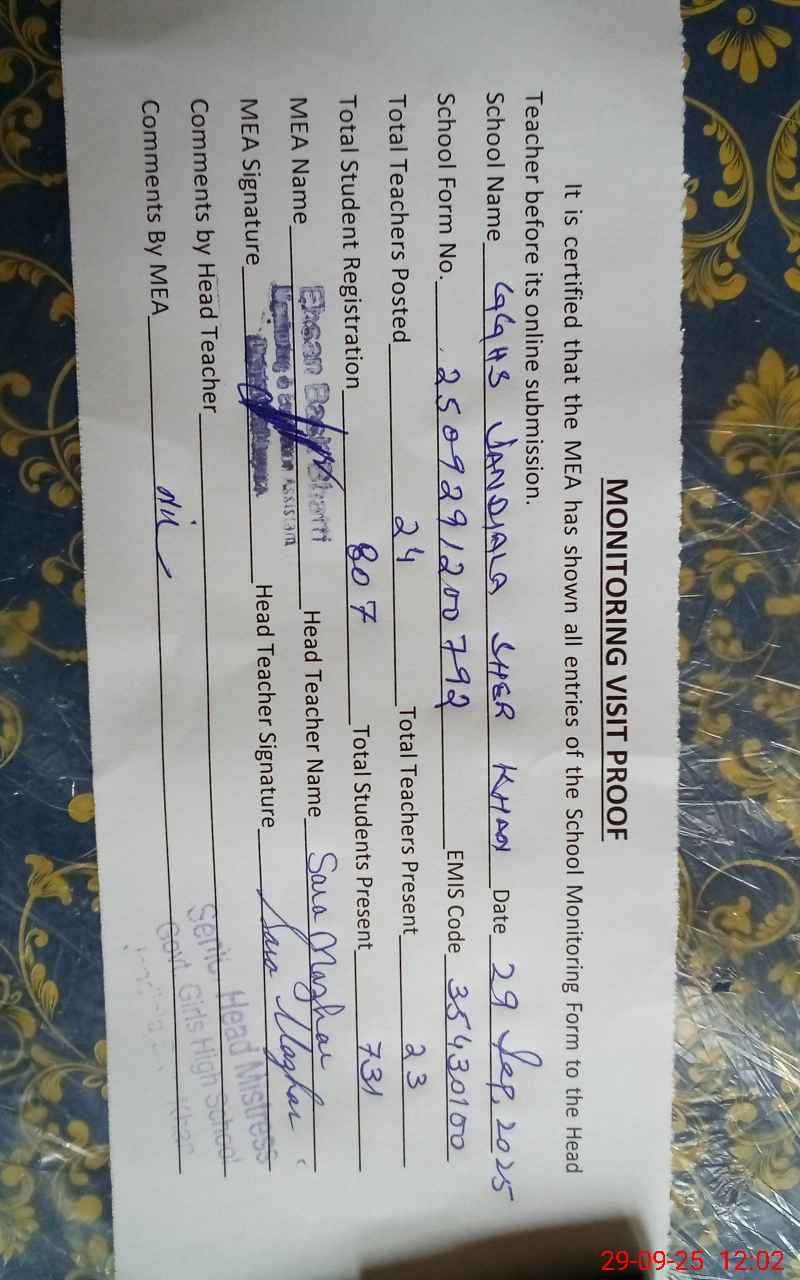 MONITORING VISIT PROOF
It is certified that the MEA has shown all entries of the School Monitoring Form to the Head
Teacher before its online submission.
School Name GGHS JANDIALA SHER KHAN Date 29 Sep, 2025
School Form No. 2509291200792 EMIS Code 35430100
Total Teachers Posted 24 Total Teachers Present 23
Total Student Registration 807 Total Students Present 731
MEA Name Ehsan Head Teacher Name Sara Mazhar
MEA Signature Head Teacher Signature Sara Mazhar
Comments by Head Teacher
Comments By MEA Nil
Monitoring & Assistant
Head Mistress
Govt. Girls High School
Khan
29-09-25 12:02